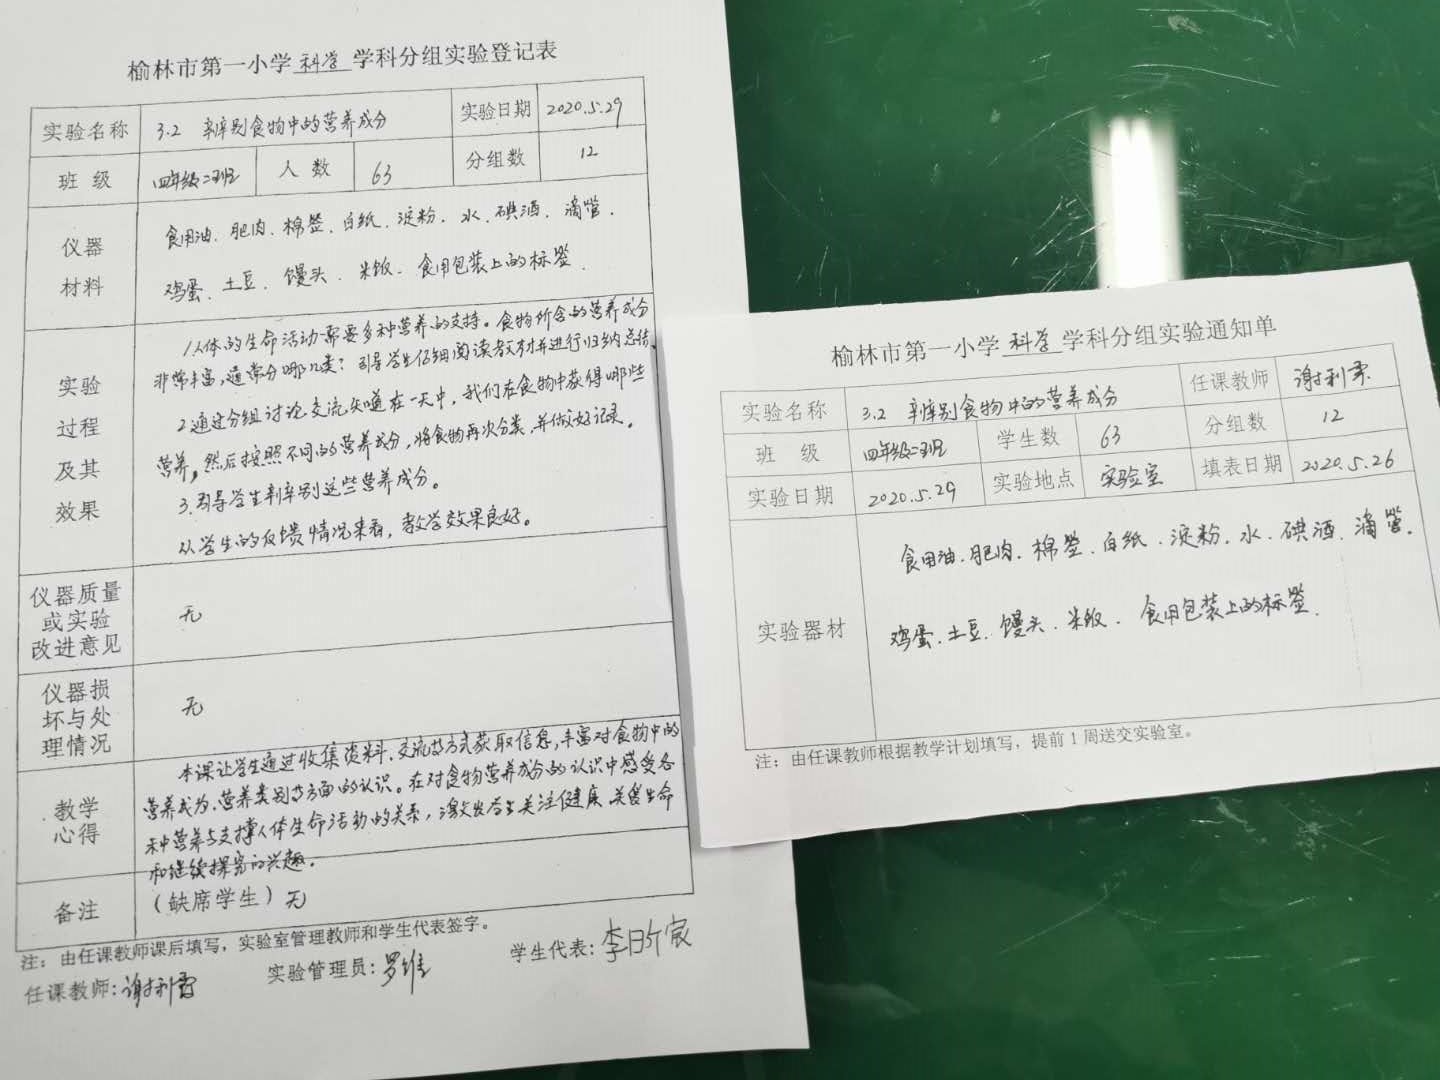 榆林市第一小学 科学 学科分组实验登记表
实验名称 3.2 辨别食物中的营养成分 实验日期 2020.5.29
班 级 四年级二班 人 数 63 分组数 12
仪器
材料
食用油、肥肉、棉签、白纸、淀粉、水、碘酒、滴管、
鸡蛋、土豆、馒头、米饭、食用包装上的标签.
实验
过程
及其
效果
1.人体的生命活动需要多种营养的支持。食物所含的营养成分
非常丰富,通常分哪几类?引导学生仔细阅读教材并进行归纳总结.
2.通过分组讨论交流知道在一天中,我们在食物中获得哪些
营养,然后按照不同的营养成分,将食物再次分类,并做好记录。
3.引导学生辨别这些营养成分。
从学生的反馈情况来看,教学效果良好。
仪器质量
或实验
改进意见
无
仪器损
坏与处
理情况
无
教学
心得
本课让学生通过收集资料、交流等方式获取信息,丰富对食物中的
营养成为、营养类别等方面的认识。在对食物营养成分的认识中感受各
种营养与支撑人体生命活动的关系,激发学生关注健康、关爱生命
和继续探究的兴趣。
备注 (缺席学生)无
注:由任课教师课后填写,实验室管理教师和学生代表签字。
任课教师:谢利 实验管理员:罗维 学生代表:李昕宸
榆林市第一小学 科学 学科分组实验通知单
实验名称 3.2 辨别食物中的营养成分 任课教师 谢利
班 级 四年级二班 学生数 63 分组数 12
实验日期 2020.5.29 实验地点 实验室 填表日期 2020.5.26
实验器材
食用油、肥肉、棉签、白纸、淀粉、水、碘酒、滴管、
鸡蛋、土豆、馒头、米饭、食用包装上的标签.
注:由任课教师根据教学计划填写,提前1周送交实验室。